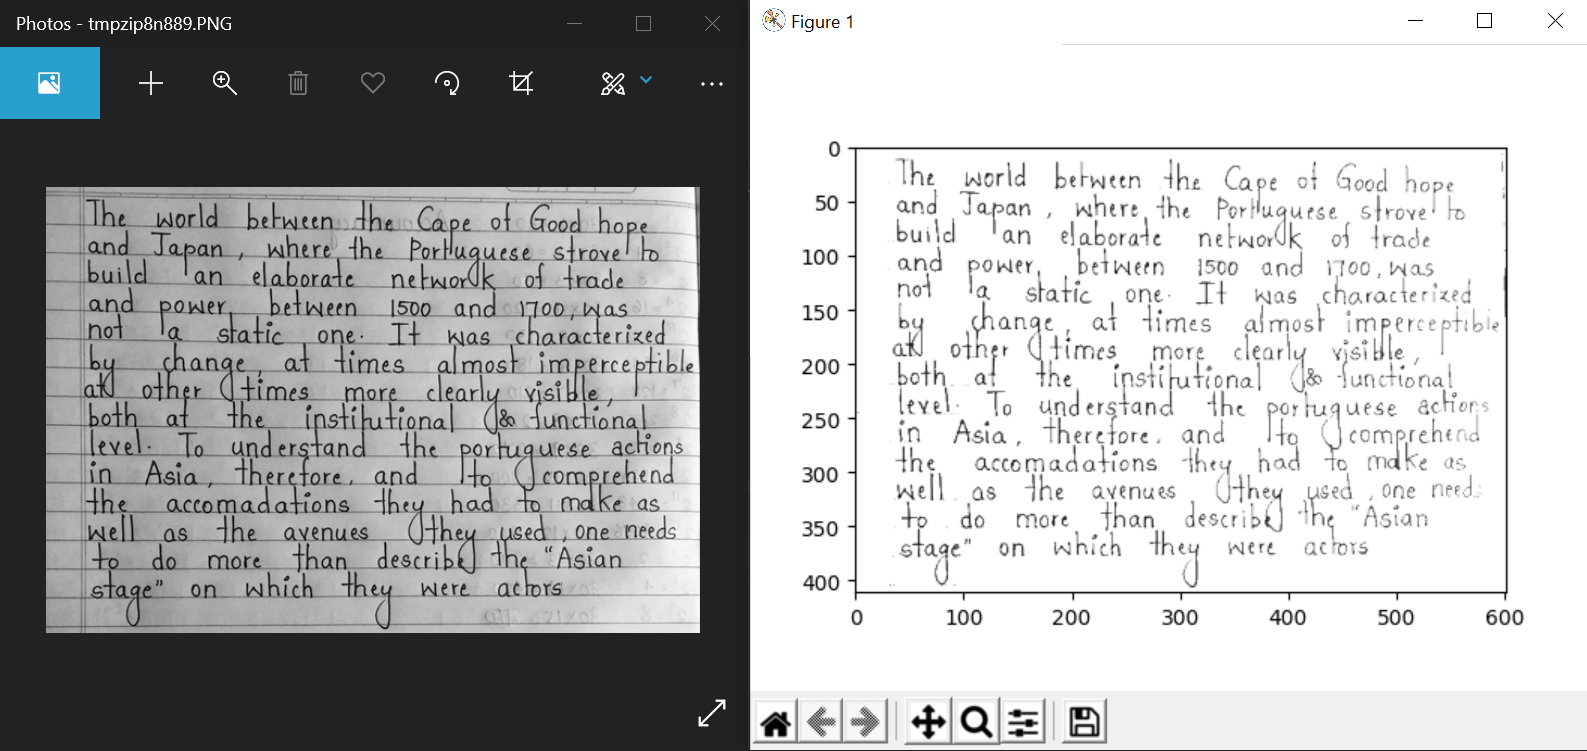 Photos - tmpzip8n889.PNG
The world between the Cape of Good hope
and Japan, where the Portuguese strove to
build an elaborate network of trade
and power, between 1500 and 1700, was
not a static one. It was characterized
by change, at times almost imperceptible
at other times more clearly visible,
both at the institutional & functional
level. To understand the portuguese actions
in Asia, therefore, and to comprehend
the accomadations they had to make as
well as the avenues they used, one needs
to do more than describe the "Asian
stage" on which they were actors
Figure 1
0
50
100
150
200
250
300
350
400
The world between the Cape of Good hope
and Japan, where the Portuguese strove to
build an elaborate network of trade
and power, between 1500 and 1700, was
not a static one. It was characterized
by change, at times almost imperceptible
at other times more clearly visible,
both at the institutional & functional
level. To understand the portuguese actions
in Asia, therefore, and to comprehend
the accomadations they had to make as
well as the avenues they used, one needs
to do more than describe the "Asian
stage" on which they were actors
0 100 200 300 400 500 600